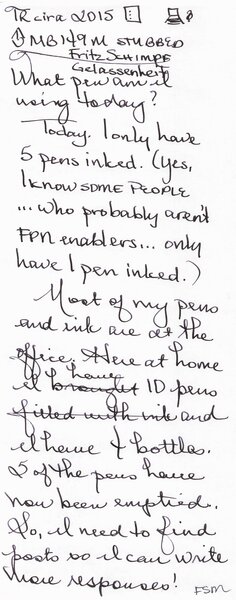 TR cira 2015
MB149M STUBBED
Fritz Schimpf
Gelassenheit
What pen am I
using today?
Today. I only have
5 pens inked. (Yes,
I know SOME PEOPLE
... who probably aren't
FPN enablers... only
have 1 pen inked.)
Most of my pens
and ink are at the
office. Here at home
I have brought 10 pens
fitted with ink and
I have 4 bottles.
5 of the pens have
now been emptied.
So, I need to find
posts so I can write
more responses!
FSM